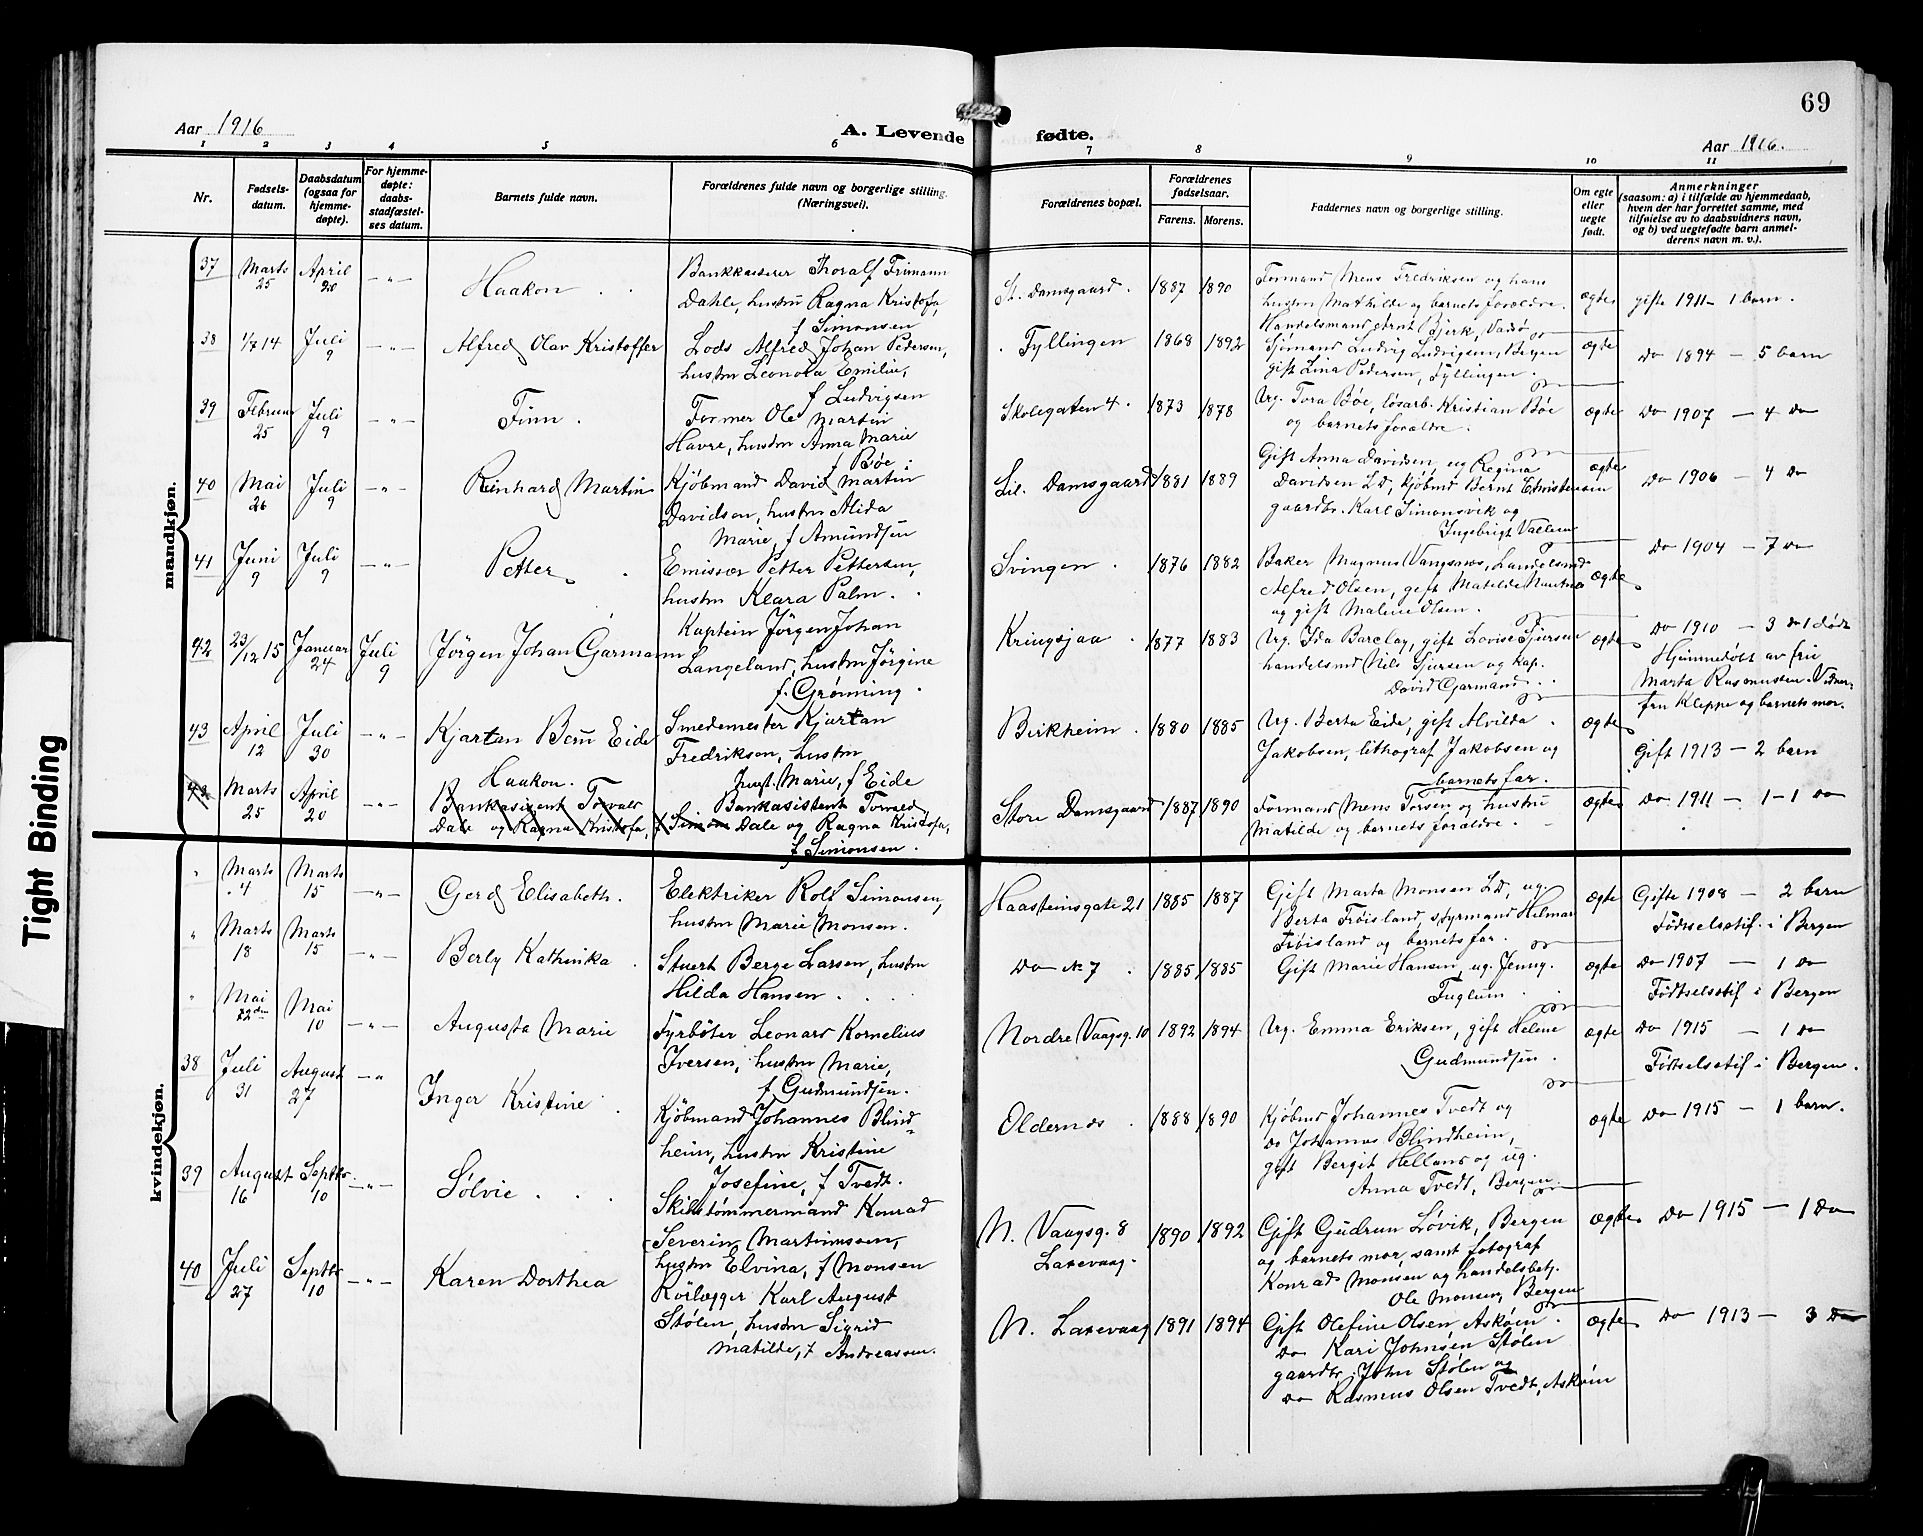 Aar 1916
A. Levende
1 2 3 4 5 6
Nr.
Fødsels-
datum.
Daabsdatum
(ogsaa for
hjemme-
døpte).
For hjemme-
døpte:
daabs-
stadfæstel-
ses datum.
Barnets fulde navn.
Forældrenes fulde navn og borgerlige stilling.
(Næringsvei).
mandkjøn.
37 Marts 25 April 20 -„- Haakon
Bankkasserer Thoralf Frimann
Dahle, hustru Ragna Kristofa,
f Simonsen
38 1/7 14 Juli 9 -„- Alfred Olav Kristoffer
Lods Alfred Johan Pedersen,
hustru Leonora Emilie,
f Ludvigsen
39 Februar 25 Juli 9 -„- Finn.
Former Ole Martin
Havre, hustru Anna Marie
f Bøe.
40 Mai 26 Juli 9 -„- Reinhard Martin
Kjøbmand David Martin
Davidsen, hustru Alida
Marie, f Amundsen
41 Juni 9 Juli 9 -„- Petter.
Emissær Petter Pettersen,
hustru Klara Palm.
42 23/12 15 Januar 24 Juli 9 Jörgen Johan Garmann
Kaptein Jörgen Johan
Langeland, hustru Jörgine
f. Grønning.
43 April 12 Juli 30 -„- Kjartan Bern Eide
Smedemester Kjartan
Fredriksen, hustru
Marie, f Eide
Marts 25 April 20 -„- Haakon.
Bankasistent Torvald
Dale og Ragna Kristofa,
Bankasistent Torvald
f Simon Dale og Ragna Kristofa,
f Simonsen.
kvindekjøn.
„ Marts 4 Marts 15 -„- Gerd Elisabeth.
Elektriker Rolf Simonsen,
hustru Marie Monsen.
„ Marts 18 Marts 15 -„- Berly Kathinka
Stuert Berge Larsen, hustru
Hilda Hansen.
„ Mai Mai 10 -„- Augusta Marie
Fyrböter Leonard Kornelius
Iversen, hustru Marie,
f Gudmundsen.
38 Juli 31 August 27 -„- Inger Kristine
Kjöbmand Johannes Blind-
heim, hustru Kristine
Josefine, f Tvedt.
39 August 16 Septbr. 10 -„- Sølvie
Skibstømmermand Konrad
Severin Martinussen,
hustru Elvina, f Monsen
40 Juli 27 Septbr 10 -„- Karen Dorthea
Rörlægger Karl August
Stølen, hustru Sigrid
Matilde, f Andreassen.
69
fødte.
Aar 1916.
7 8 9 10 11
Forældrenes bopæl.
Forældrenes
fødselsaar.
Farens. Morens.
Faddernes navn og borgerlige stilling.
Om egte
eller
uegte
født.
Anmerkninger
(saasom: a) i tilfælde av hjemmedaab,
hvem der har forrettet samme, med
tilføielse av to daabsvidners navn,
og b) ved uegtefødte barn anmel-
derens navn m. v.).
St. Damsgaard. 1887 1890
Formand Mens Fredriksen og hans
hustru Mathilde og barnets forældre.
ægte gifte 1911 - 1 barn.
Fyllingen 1868 1892
Handelsmand Arnt Bjerk, Vadsø
Sjømand Ludvig Ludvigsen, Bergen
gift Lina Pedersen, Fyllingen.
ægte Do 1894 - 5 barn
Skolegaten 4. 1873 1878
Ug. Tora Bøe, løsarb. Kristian Bøe
og barnets forældre.
ægte Do 1907 - 4 Do
Lil. Damsgaard 1881 1889
Gift Anna Davidsen, ug Regina
Davidsen LD, kjøbmd Bernt Christensen
gaardbr. Karl Simonsvik og
Ingebrigt
ægte Do 1906 - 4 Do
Svingen. 1876 1882
Baker Magnus Vangsnes, Handelsmd
Alfred Olsen, gift Matilde
og gift Malene Olsen.
ægte Do 1904 - 7 Do
Kringsjaa. 1877 1883
Ug. Ida Barclay, gift Lovise Sjursen
handelsmd Nils Sjursen og kap.
David Garmand.
ægte Do 1910 - 3 1 död
Hjemmedöbt av fru
Marta Rasmussen. Vidner
fru Kleppe og barnets mor.
Birkheim. 1880 1885
Ug. Berta Eide, gift Alvilda
Jakobsen, lithograf Jakobsen og
barnets far.
ægte Gift 1913 - 2 barn
Store Damsgaard 1887 1890
Formand Mens Torsen og hustru
Matilde og barnets forældre.
ægte Do 1911 - 1-1 Do
Haasteinsgate 21 1885 1887
Gift Marta Monsen LD, ug.
Berta Frøisland, styrmand Hilmar
Frøisland og barnets far.
ægte Gifte 1908 - 2 barn
Födselsstif. i Bergen
Do No 7 1885 1885
Gift Marie Hansen, ug. Jenny
Fuglum.
ægte Do 1907 - 1 Do
Födselsstif i Bergen
Nordre Vaagsg. 10 1892 1894
Ug. Emma Eriksen, gift Helene
Gudmundsen.
ægte Do 1915 - 1 Do
Födselsstif i Bergen.
Oldernes 1888 1890
Kjøbmd Johannes Tvedt og
Do Johannes Blindheim,
gift Bergit Helland og ug.
Anna Tvedt, Bergen
ægte Do 1915 - 1 barn.
N. Vaagsg. 8
Laxevaag. 1890 1892
Gift Gudrun Løvik, Bergen
og barnets mor, samt fotograf
Konrad Monsen og handelsbetj.
Ole Monsen, Bergen
ægte Do 1915 - 1 Do
N. Laxevaag 1891 1894
Gift Olefine Olsen Askøen.
Do Kari Johnsen Stølen
gaardbr. John Stølen og
Do Rasmus Olsen Tvedt, Askøen
ægte Do 1913 - 3 Do
Tight Binding